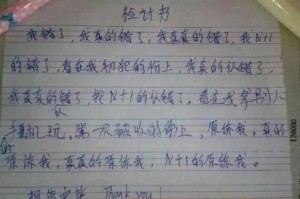 检讨书
我错了，我真的错了，我真真的错了，我N+1
的错了，看在我初犯的份上，我真的认错了，
我真真的错了，我N+1的认错了，看在我
玩，第一次被收的份上，原谅我，真的
原谅我，真真的原谅我，N+1的原谅我。
报告完毕 Thank you!